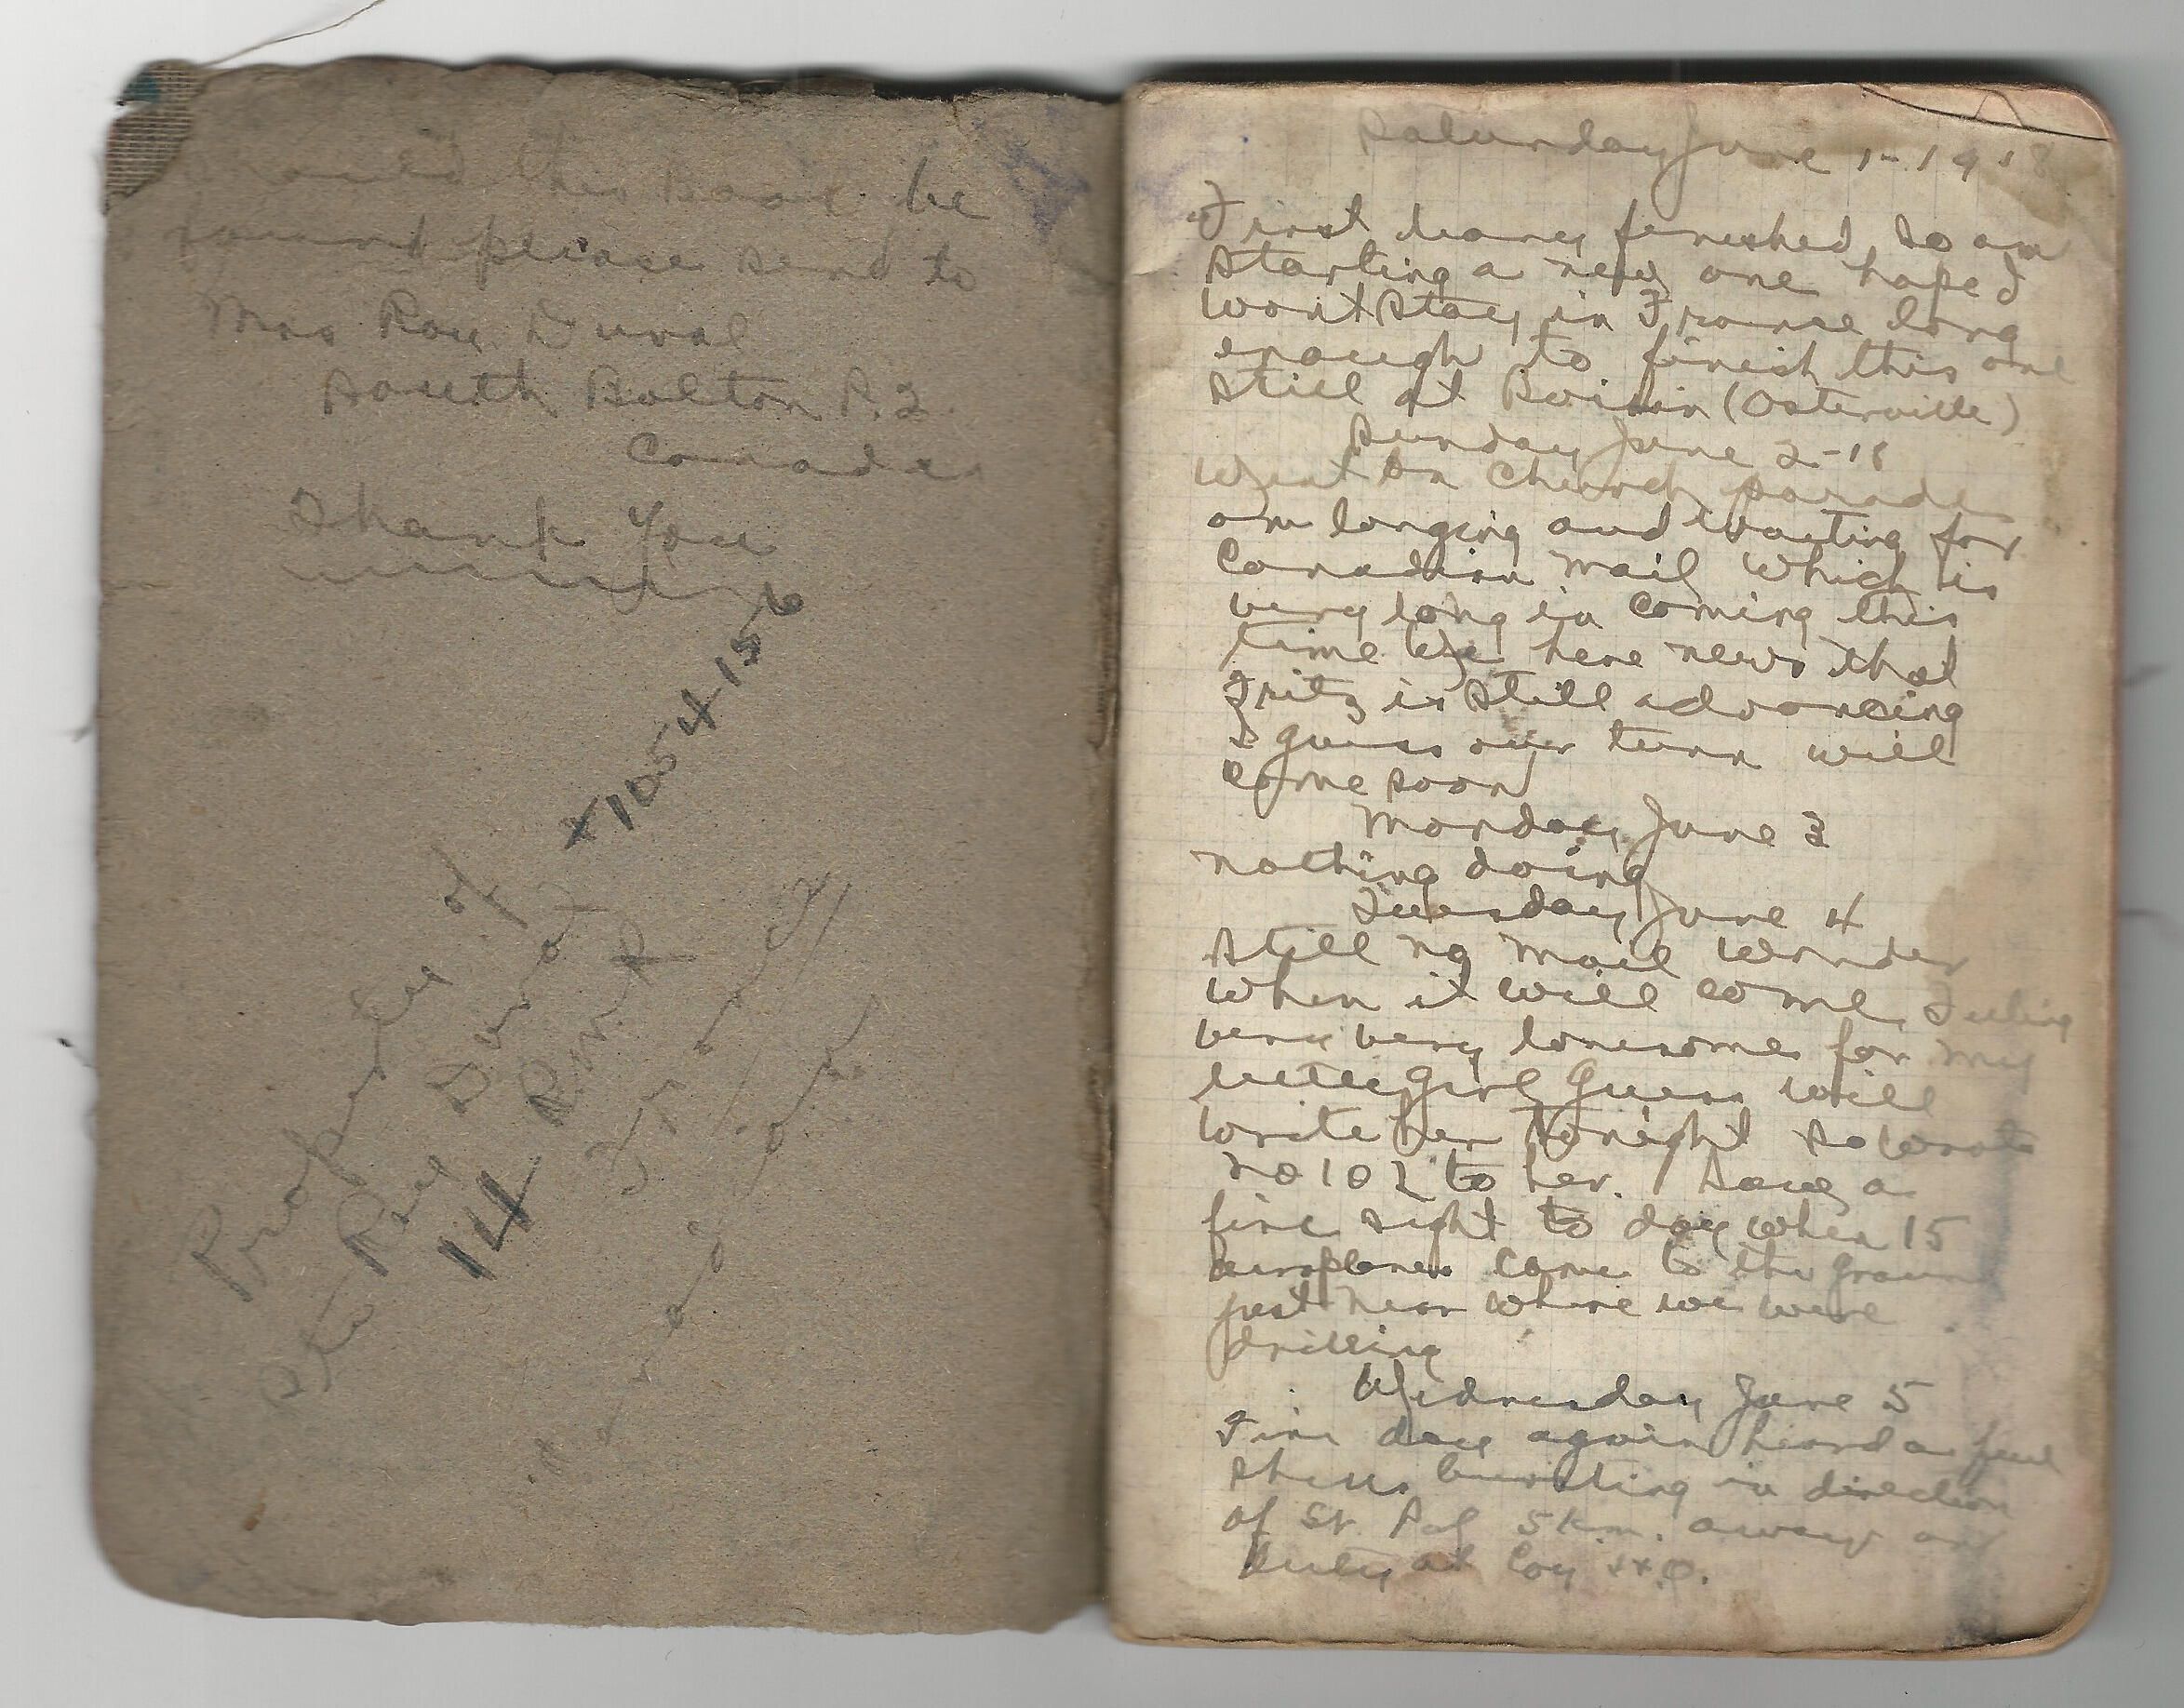 Should this Book be
found please send to
Mrs Roy Duval
South Bolton P.2.
Canada
Thank You
Property of
Pte Roy Duval
x1054156
14
R.M.R
Saturday June 1-1918
First diary finished, so am
starting a new one hope I
wont stay in France long
enough to finish this one
still at (Osterville)
Sunday June 2-18
Went on Church parade
am longing and waiting for
Canadian mail which is
very long in coming this
time We here news that
Fritz is still advancing
I guess our turn will
come soon
Monday June 3
nothing doing
Tuesday June 4
Still no mail wonder
when it will come. Feeling
very very lonesome for my
little girl Guess will
write her tonight so wrote
no 102 to her. Saw a
fine sight to day when 15
aeroplanes came to the ground
just near where we were
drilling
Wednesday June 5
Fine day again heard a few
shells bursting in direction
of St. Pol 5 km. away on
duty at Coy H.Q.